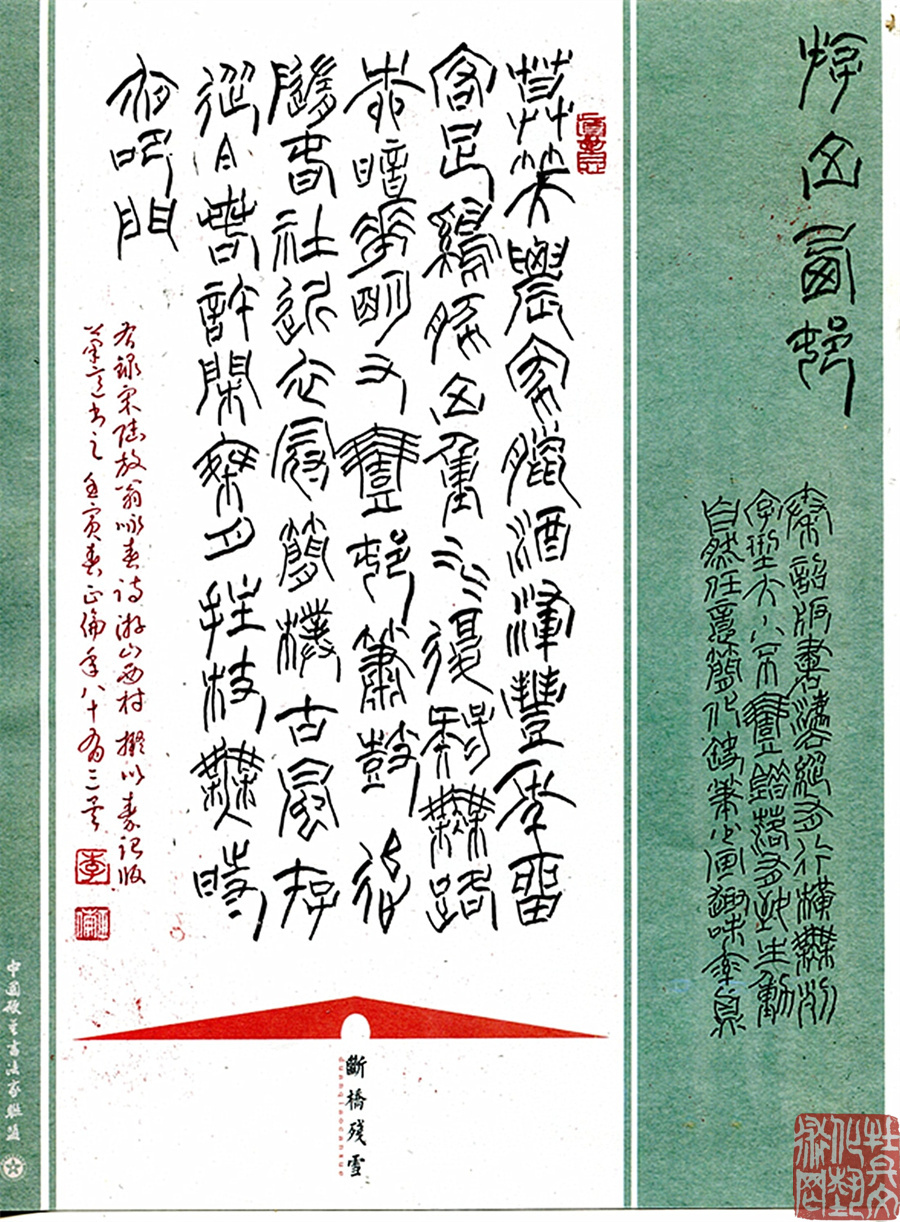 游山西邨
秦詔版書灋縱有行橫無列
字型大小不壹錯落有致生動
自然任意簡化
莫笑農家臘酒渾豐年留
客足鷄豚山重水復疑無路
柳暗華明又壹邨簫鼓追
隨春社近衣冠簡樸古風存
從今若許閑乘月拄杖無時
夜叩門
右録宋陸放翁咏春詩游山西村 擬以秦詔版
筆意书之 壬寅春 正倫年八十有三
斷橋殘雪
中國硬筆書法家聯盟